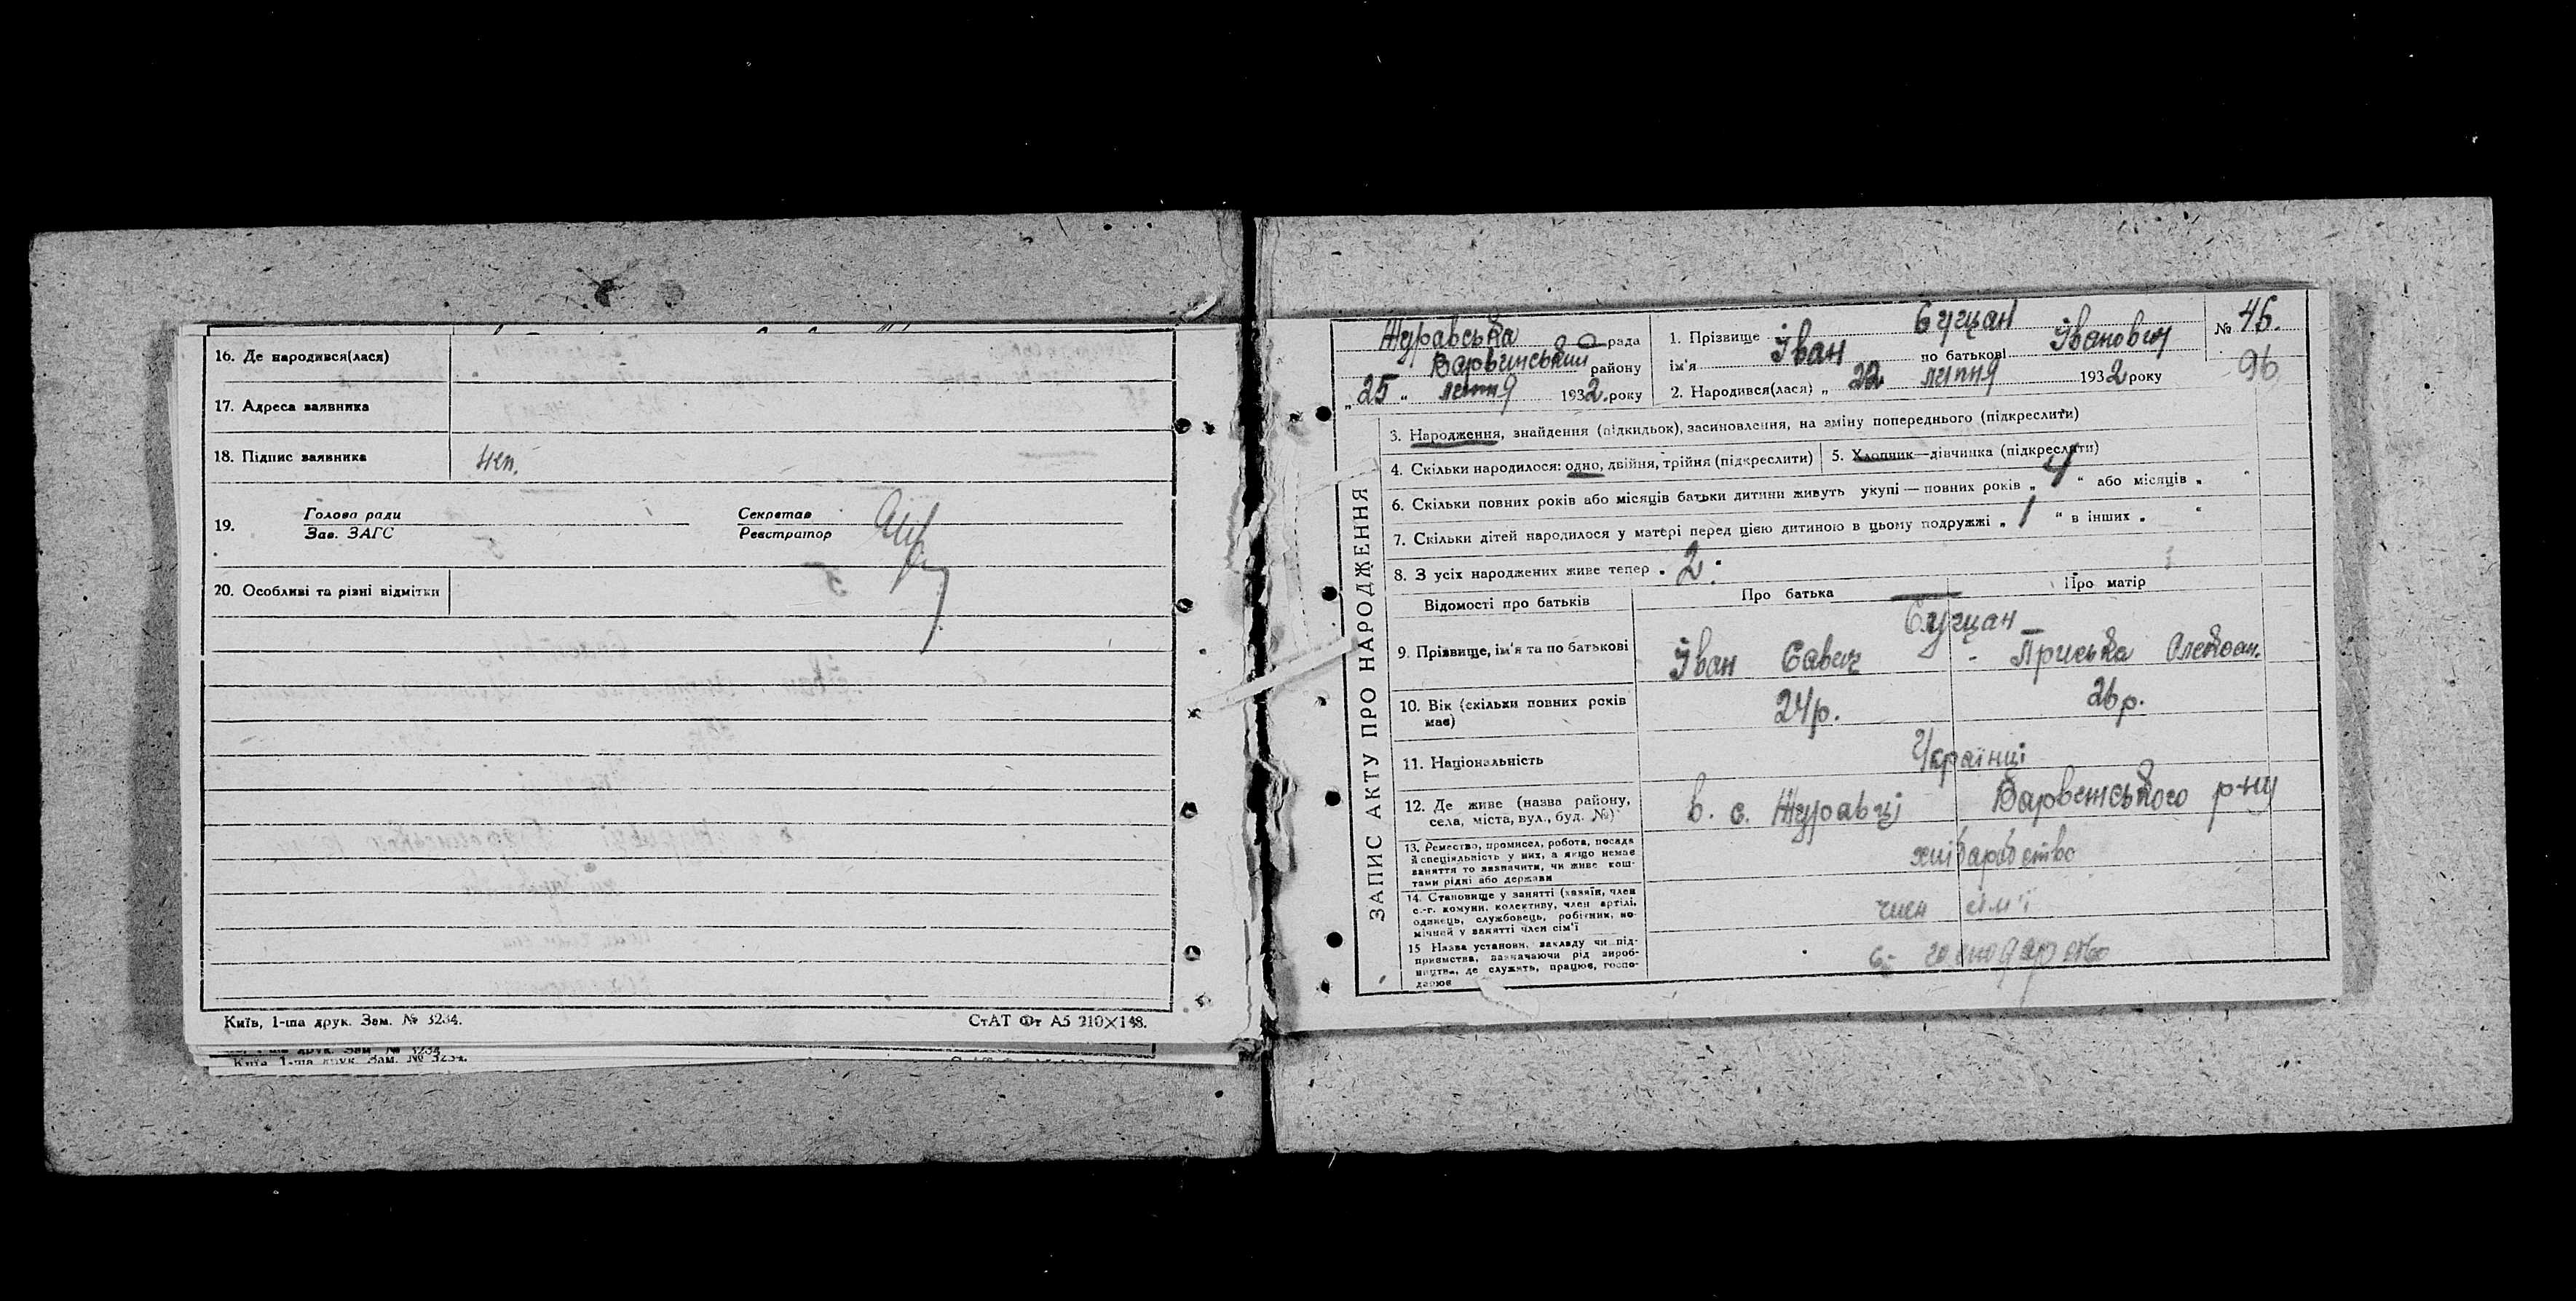 16. Де народився(лася)
17. Адреса заявника
18. Підпис заявника
неп.
19. Голова ради Секретар
Зав. ЗАГС Реєстратор
20. Особливі та різні відмітки
Київ, 1-ша друк. Зам. № 3234. СтАТ Фт А5 210×148.
Київ, 1-ша друк. Зам. № 3234.
ЗАПИС АКТУ ПРО НАРОДЖЕННЯ
Журавська рада
Варвинський району
„25“ липня 1932 року
1. Прізвище
ім'я Іван по батькові Іванович
2. Народився(лася) „ 22 липня 1932 року
№ 46.
96
3. Народження, знайдення (підкидьок), засиновлення, на зміну попереднього (підкреслити)
4. Скільки народилося: одно, двійня, трійня (підкреслити) 5. Хлопчик—дівчинка (підкреслити)
6. Скільки повних років або місяців батьки дитини живуть укупі — повних років „ 4 “ або місяців „ “
7. Скільки дітей народилося у матері перед цією дитиною в цьому подружжі „ 1 “ в інших „ “
8. З усіх народжених живе тепер „ 2 “
Відомості про батьків Про батька Про матір
9. Прізвище, ім'я та по батькові
Іван Савич - Приська Олександ.
10. Вік (скільки повних років має) 24р. 26р.
11. Національність Українці
12. Де живе (назва району, села, міста, вул., буд. №) в. с. Журавці Варвенського р-ну
13. Ремество, промисел, робота, посада
й спеціяльність у них, а якщо немає
заняття то зазначити, чи живе кош-
тами рідні або держави
хліборобство
14. Становище у занятті (хазяїн, член
с.-г. комуни, колективу, член артілі,
одинець, службовець, робітник, по-
мічний у занятті член сім'ї
член сім'ї
15 Назва установи, закладу чи під-
приємства, зазначаючи рід вироб-
ництв., де служить, працює, госпо-
дарює
с- господарство